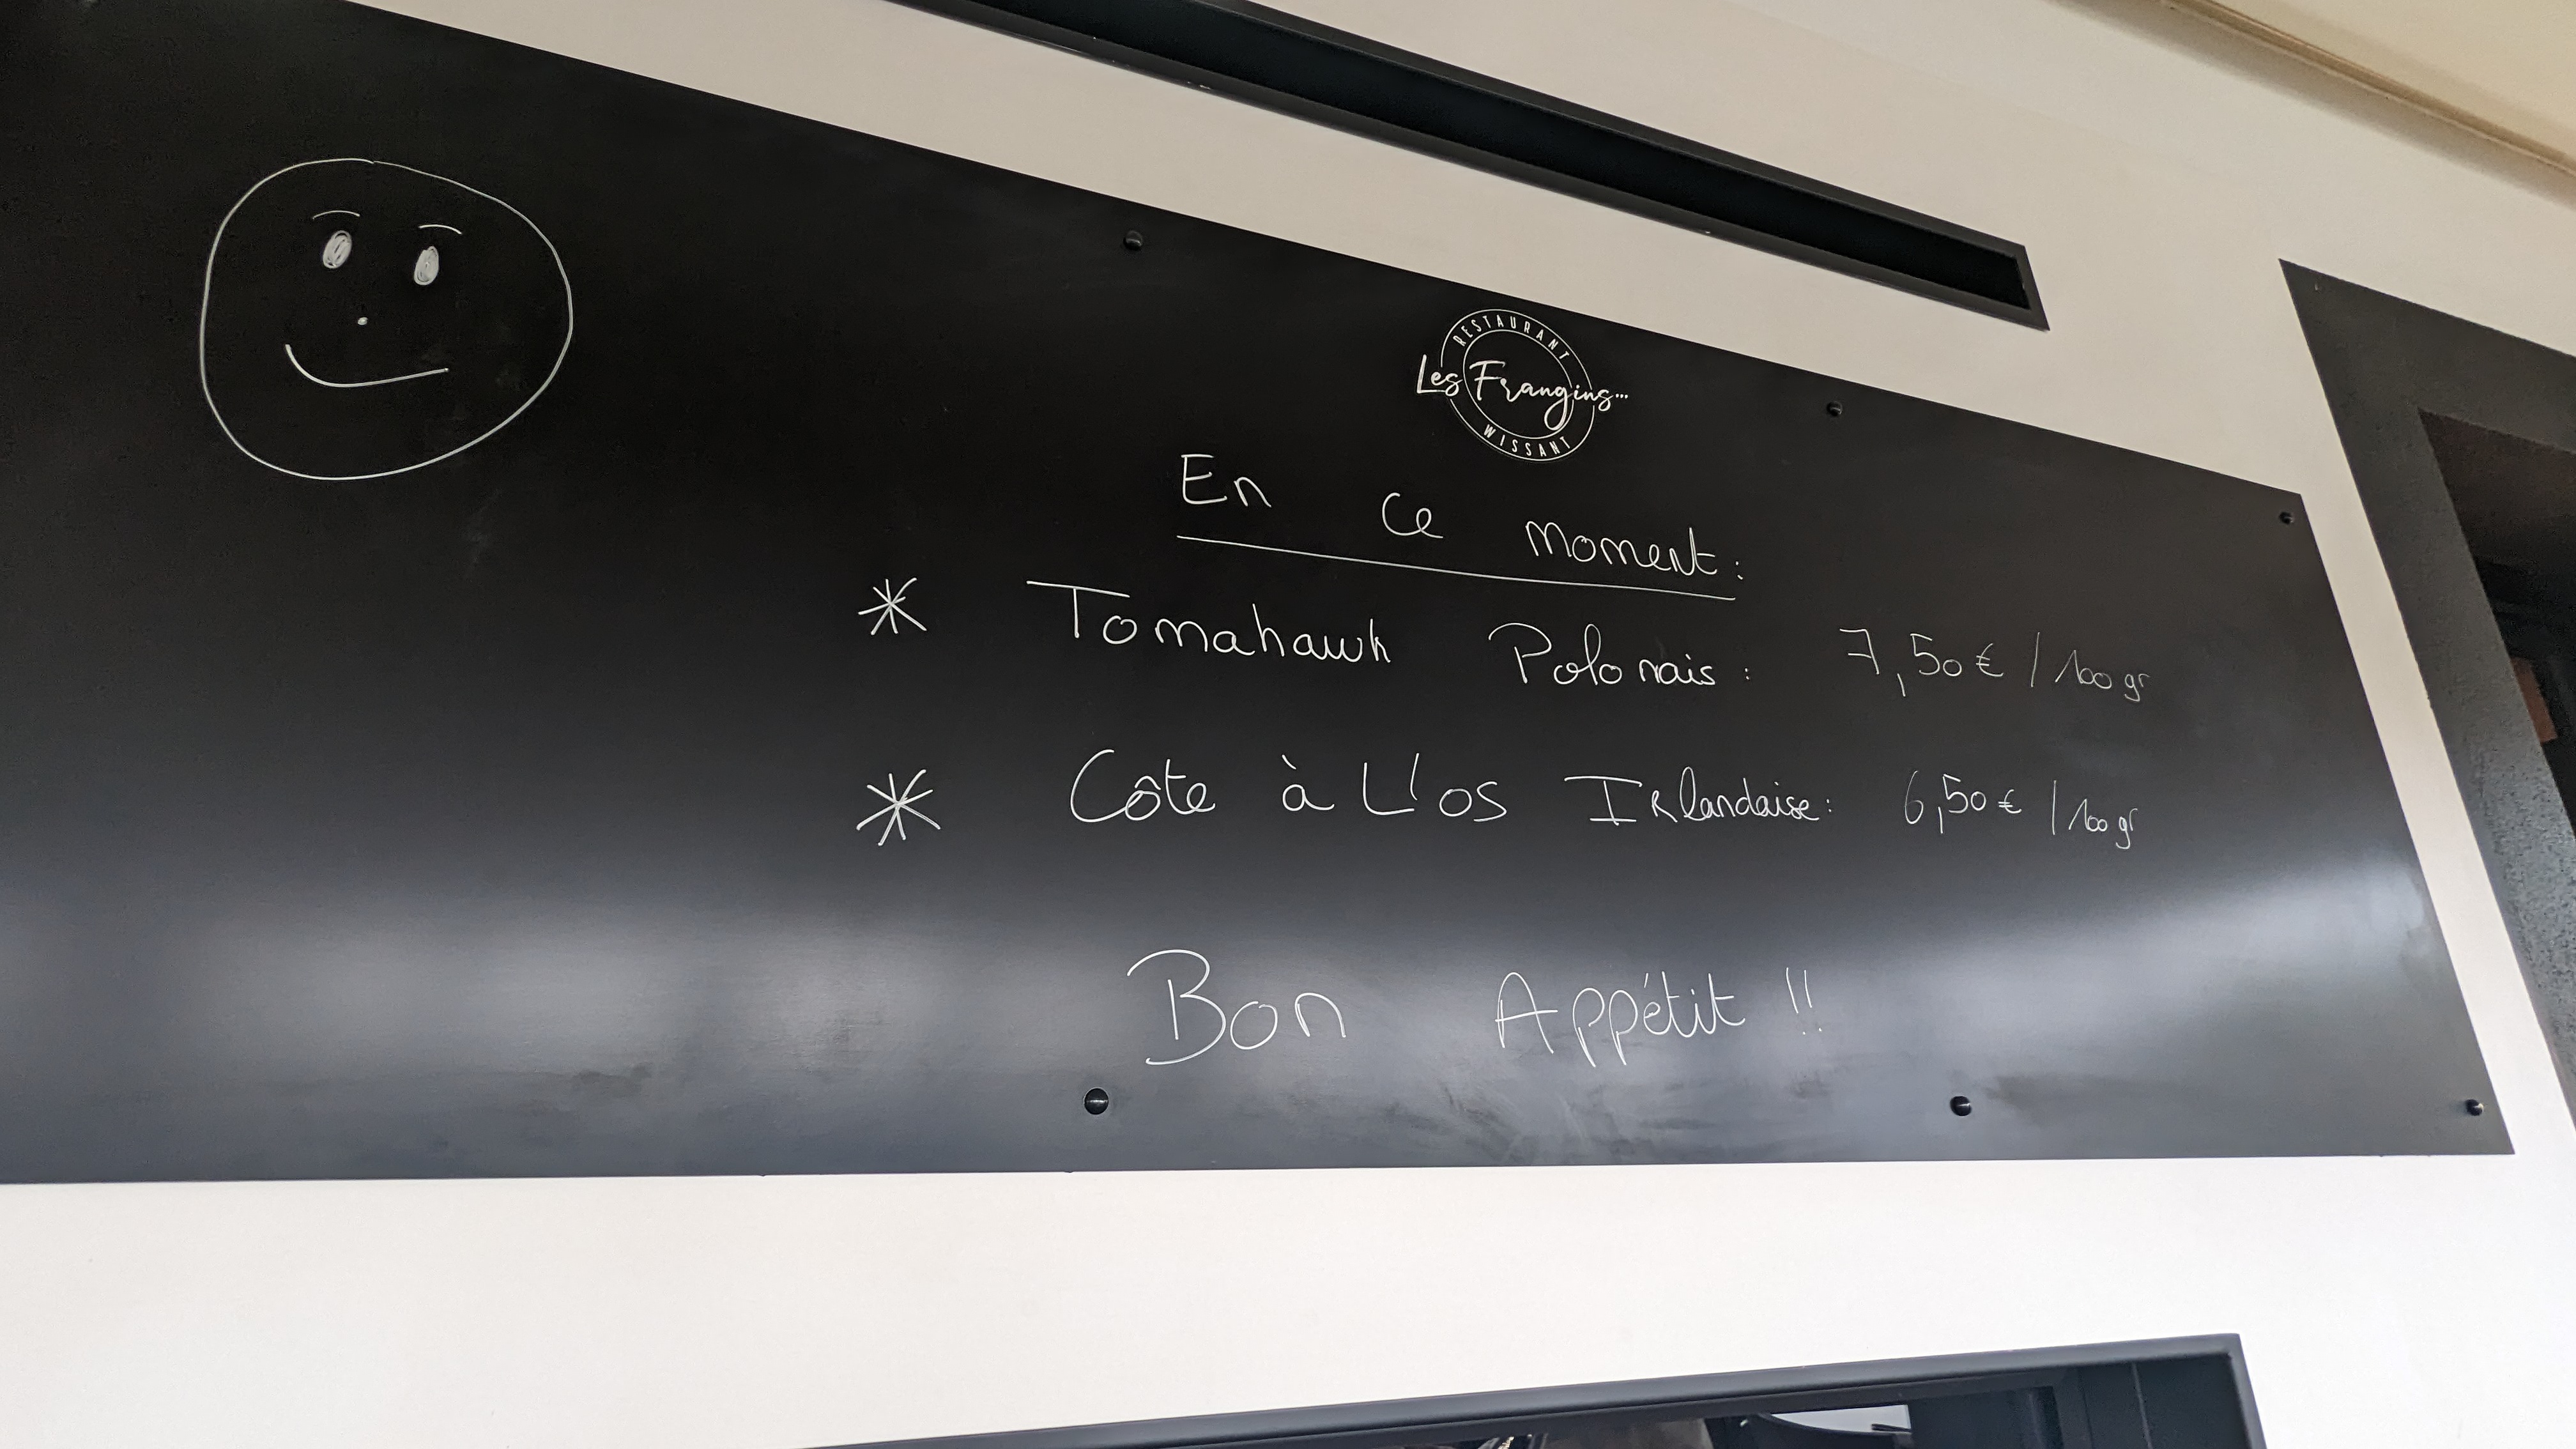 RESTAURANT
Les Frangins...
WISSANT
En Ce moment:
* Tomahawk Polonais : 7,50€ / 100 gr
* Côte à L'os IRlandaise : 6,50€ / 100 gr
Bon Appétit !!